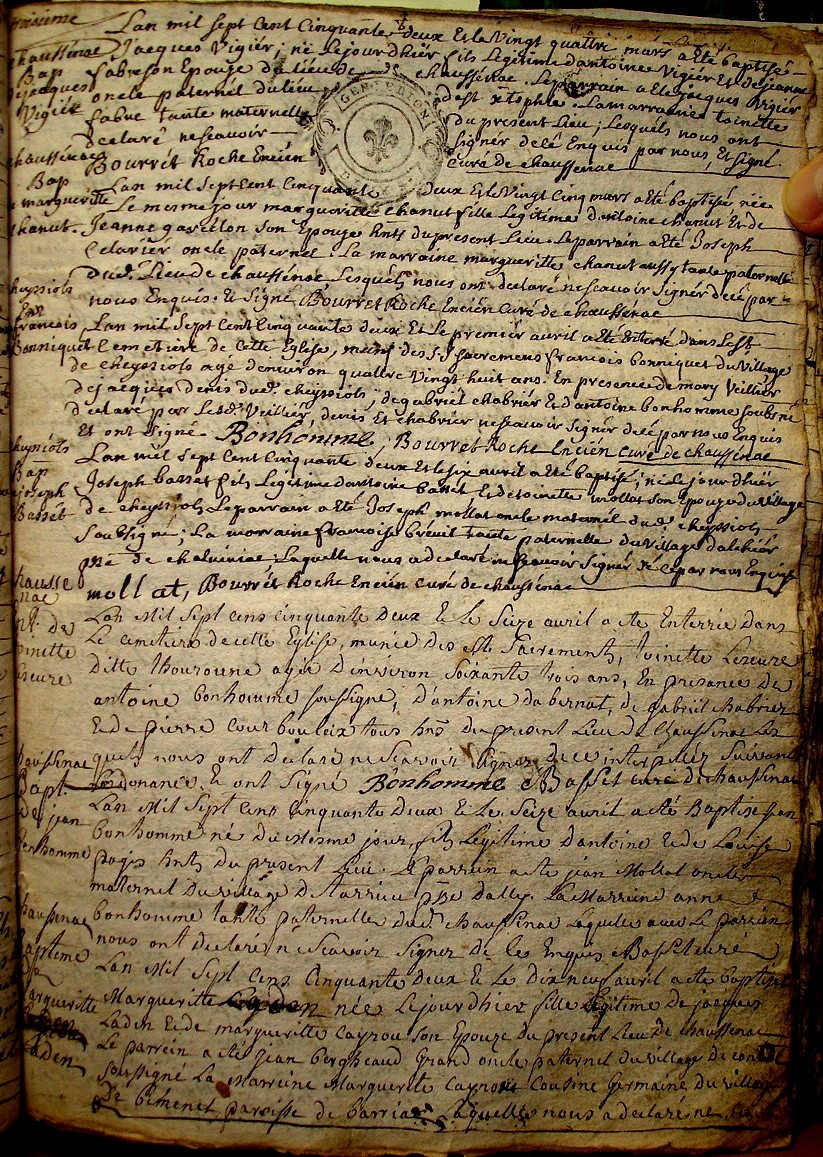 Lan mil sept cent Cinquante deux Et le Vingt quattre mars a Eté baptisé
chaussenac Jacques Vigier, né le jour dhiér fils Legitime dantoine Vigier Et de jeanne
Bap fabre son Epouse du lieu de chaussenac. Le parrain a Eté jacques Vigiér
de jacques oncle paternel du lieu dest xtophle. La marraine toinette
Vigiér fabre tante maternelle du present Lieu; Lesquéls nous ont
declaré nescavoir signér de cé Enquis par nous, Et signé
chaussénac Bourrét Roche Encién curé de chaussenac
Bap Lan mil Sept Cent cinquante deux Et le Vingt Cinq mars a Eté baptisée née
marguerite Le mesme jour margueritte chanut fille Legitime dantoine chanut Et de
chanut Jeanne garcelon son Epouse hnts du present Lieu. Le parrain a Eté Joseph
Celariér oncle paternel. La marraine margueritte chanut aussy tante paternelle
dud. Lieu de chaussénac Lesquéls nous ont declaré nescavoir Signér de cé par
cheyssiols nous Enquis. Et Signé Bourret Roche Encién Curé de chaussénac
francois Lan mil Sept Cent Cinquante deux Et le premiér avril a Eté Enterré dans Lest
Bonniquet Cemetiére de Cette Eglise, muni des St Sacremens francois bonniquet du Village
de cheyssiols agé denviron quattre Vingt huit ans. En presence de mary Veilliér
de jacques denis dud. cheyssiols; de gabriél chabriér Et dantoine bonhomme soubsné
declaré par Lesd. Veilliér, denis et chabriér nescavoir Signér de cé par nous Enquis
Et ont signé. Bonhomme, Bourret Roche Encién curé de chaussénac
cheyssiols Lan mil Sept Cent cinquante deux Et le six avril a Eté baptisé; né le jour dhiér
Bap Joseph basset fils Legitime dantoine basset Et de toinette mollat son Epouse du Village
joseph de cheyssiols Le parrain a Eté Joseph mollat oncle maternél dud. cheyssiols
Bassét Soubsigné; La marraine francoise breuil tante paternelle du Village
psse de chalviniac Laquelle nous a declaré nescavoir Signér de ce par nous Enquise
mollat, Bourrét Roche Encién curé de chaussénac
chaussenac Lan Mil Sept cens cinquante deux Et Le Seize avril a eté Enterrée dans
Le cemitiere de cette Eglise, munie des Sts Sacrements, toinette Lescure
ditte thouroune agée d'environ soixante trois ans, En presance de
antoine bonhomme soussigné, d'antoine dabernat, de gabriel chabrier
Et de pierre courbouleix tous hnts du present Lieu de Chaussenac Les
quels nous ont declaré ne scavoir Signer de ce interpellés Suivant
chaussinac Lordonance Et ont Signé Bonhomme Basset curé de chaussenac
Bapt. Lan Mil Sept cens cinquante deux Et Le Seize avril a eté Baptisé jean
de jean bonhomme né du mesme jour, fils Legitime d'antoine Et de Louise
bonhomme pages hnts du present Lieu. Le parrein a eté jean Mollat oncle
maternel du village d Et La Marreine anne
chaussinac bonhomme tante paternelle dud. chaussinac Laquelle avec Le parrein
Bapteme nous ont declaré ne scavoir Signer de ce Enquis Basset curé
de Lan Mil Sept cens cinquante deux Et Le Dix neuf avril a eté baptisée
Margueritte Margueritte Laden née Le jour d'hier fille Legitime de jacques
Laden Laden Et de margueritte cayrou son Epouze du present Lieu de chaussenac
Le parrein a eté jean bergheaud grand oncle paternel du village de
soussigné La Marreine Marguerite cayrou Cousine Germaine du village
de bimenet paroisse de barriac Laquelle nous a declaré ne